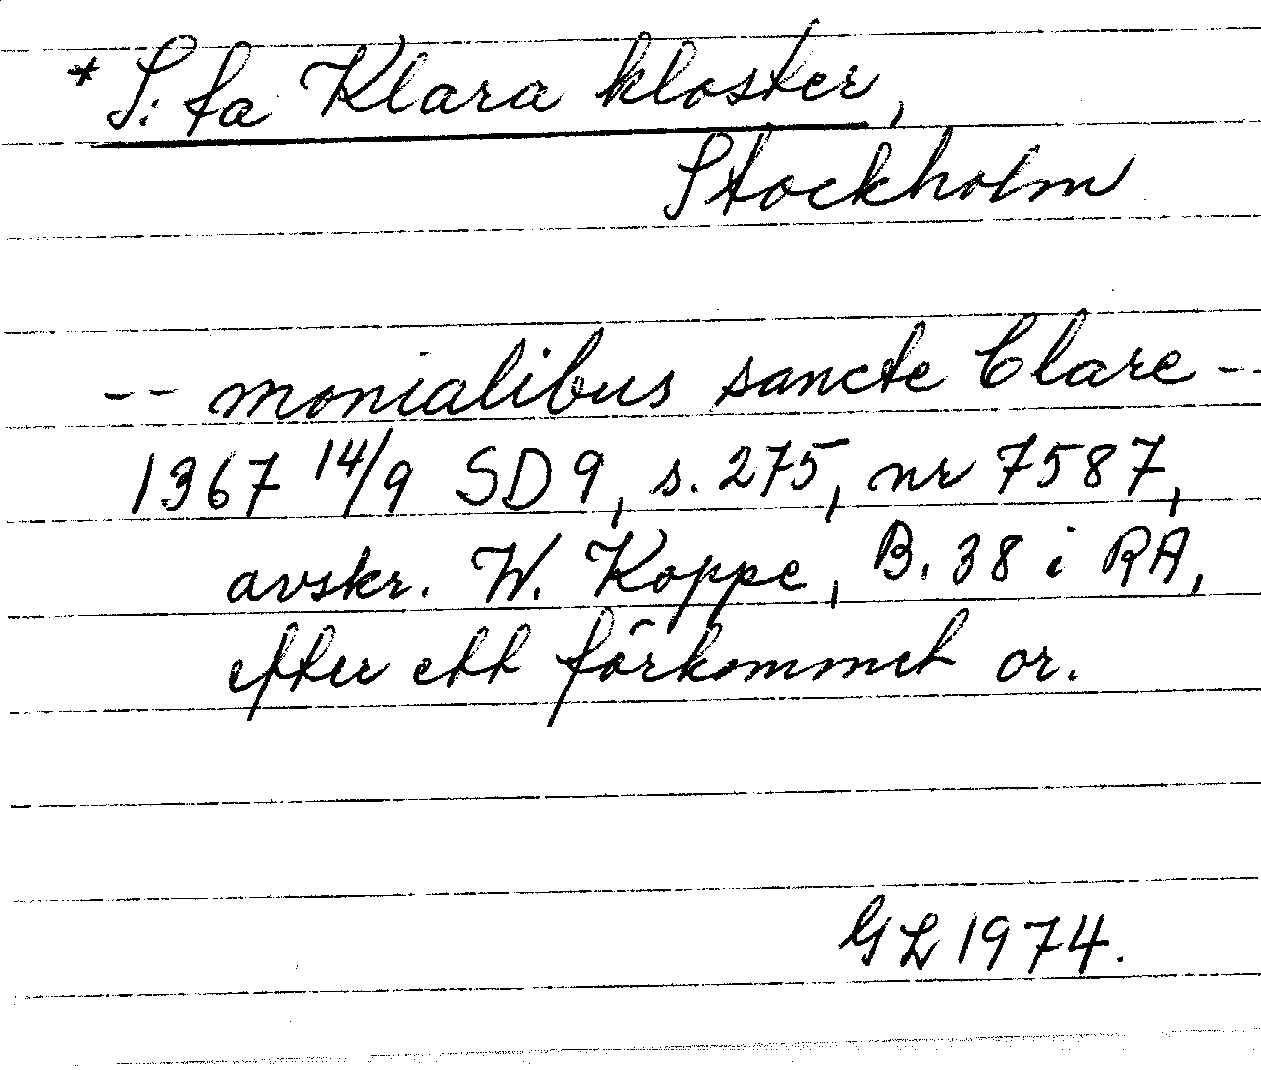 * S:ta Klara kloster,
Stockholm
-- monialibus sancte Clare --
1367 14/9 SD 9, s. 275, nr 7587,
avskr. W. Koppe, B. 38 i RA,
efter ett förkommet or.
GL 1974.